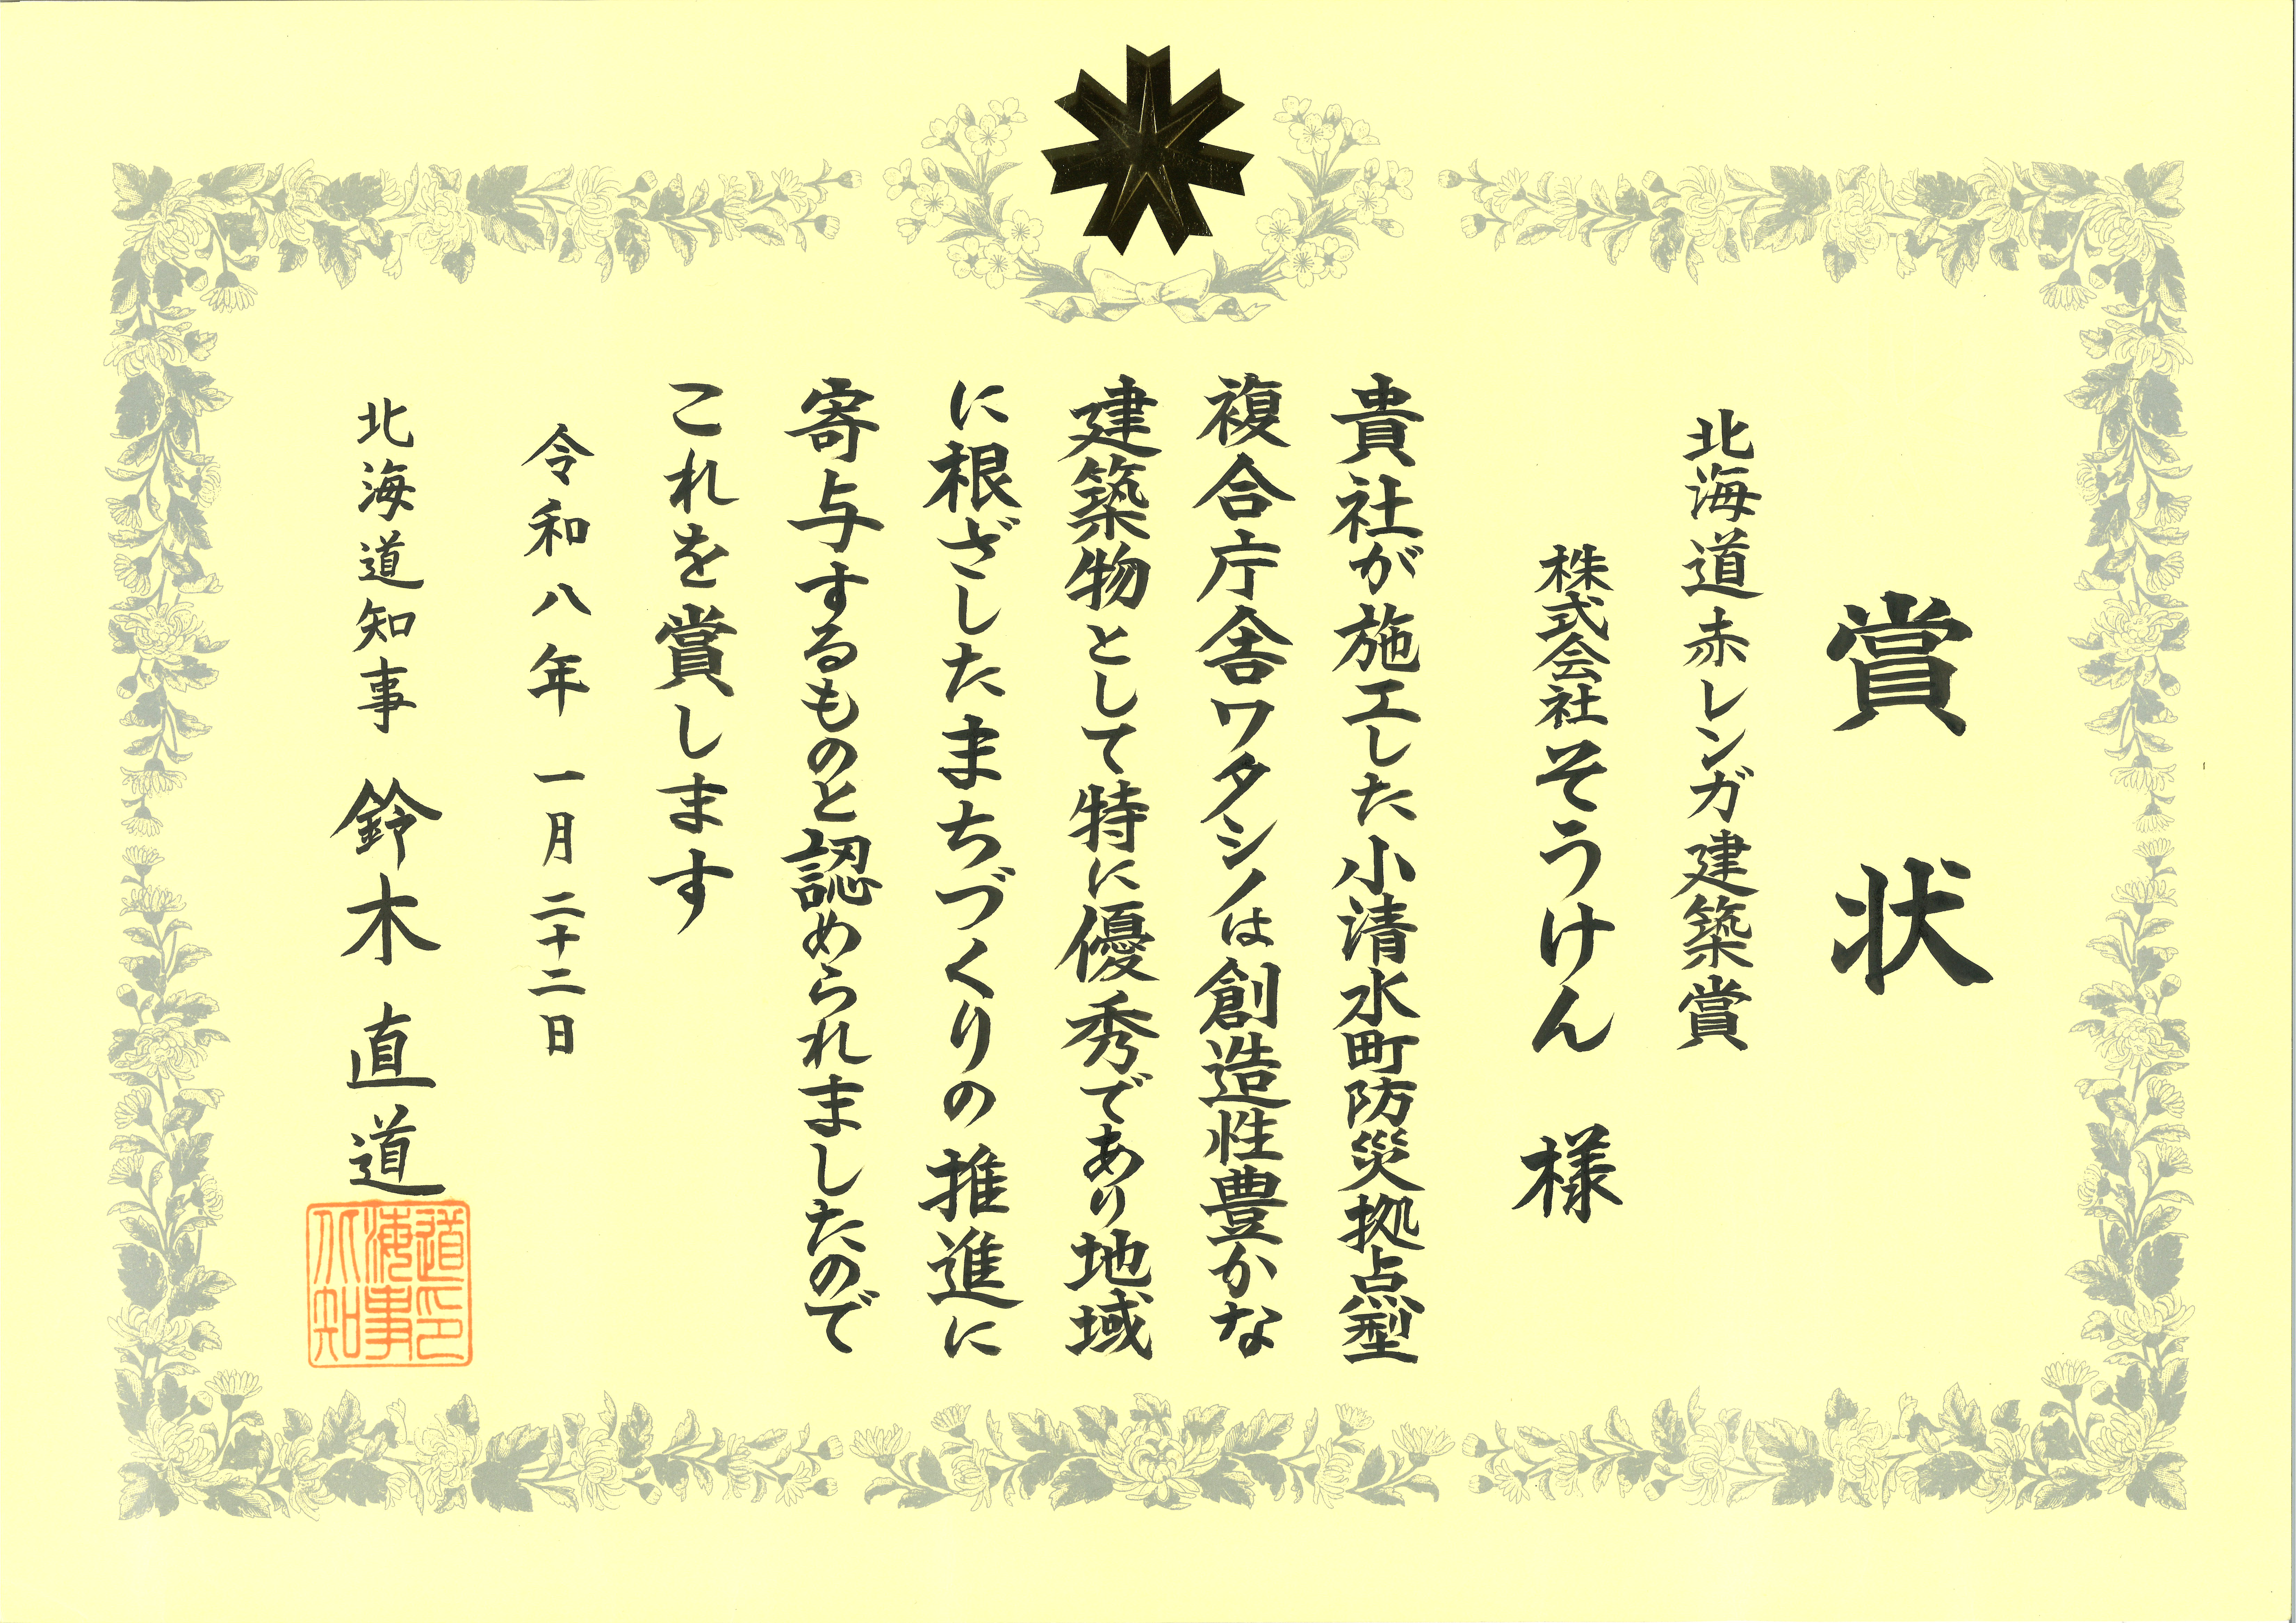 賞状
北海道赤レンガ建築賞
株式会社そうけん 様
貴社が施工した小清水町防災拠点型
複合庁舎ワタシノは創造性豊かな
建築物として特に優秀であり地域
に根ざしたまちづくりの推進に
寄与するものと認められましたので
これを賞します
令和八年一月二十二日
北海道知事 鈴木直道
北海道知事印